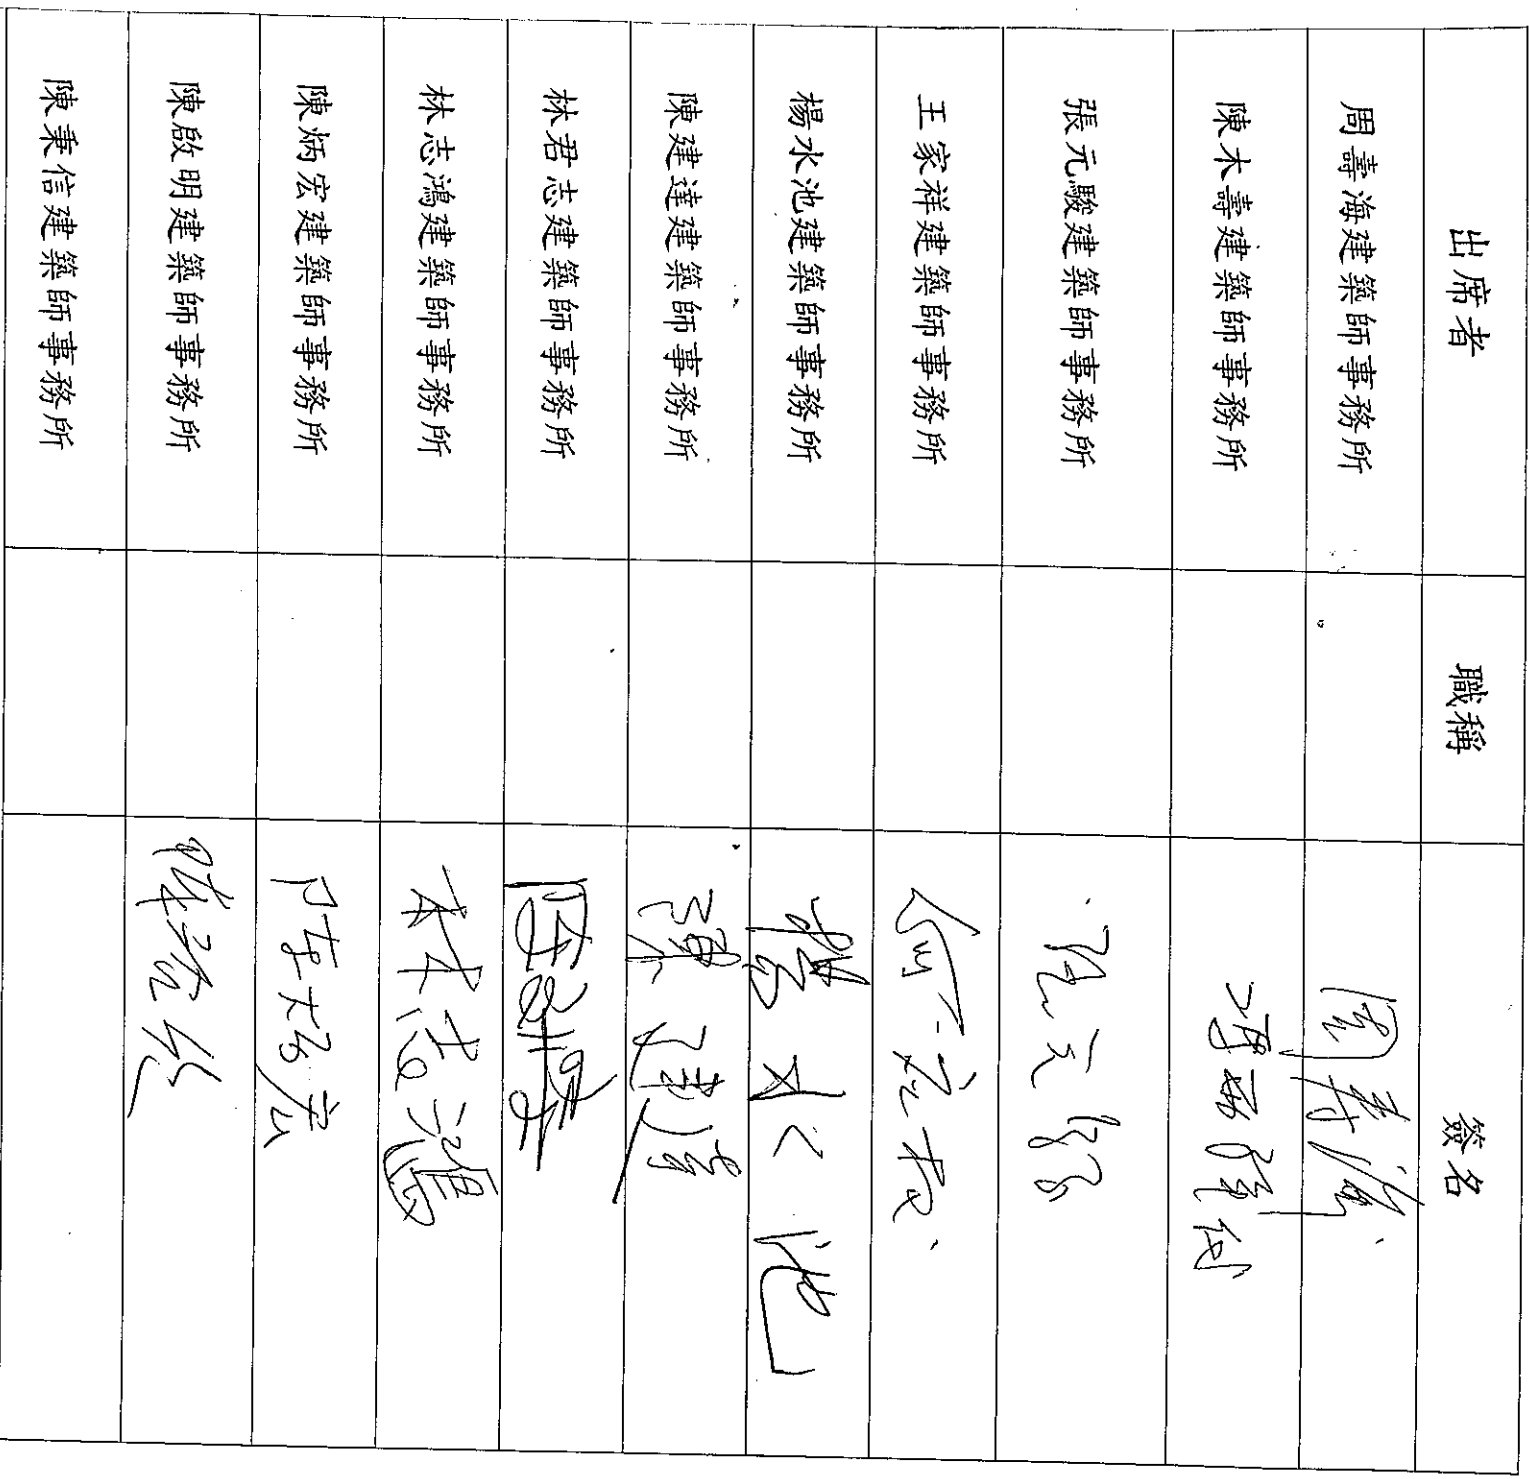 出席者 職稱 簽名
周壽海建築師事務所 周壽海
陳木壽建築師事務所
張元駿建築師事務所 張元駿
王家祥建築師事務所
楊水池建築師事務所 楊水池
陳建達建築師事務所 陳建達
林君志建築師事務所
林志鴻建築師事務所 林志鴻
陳炳宏建築師事務所 陳炳宏
陳啟明建築師事務所
陳秉信建築師事務所